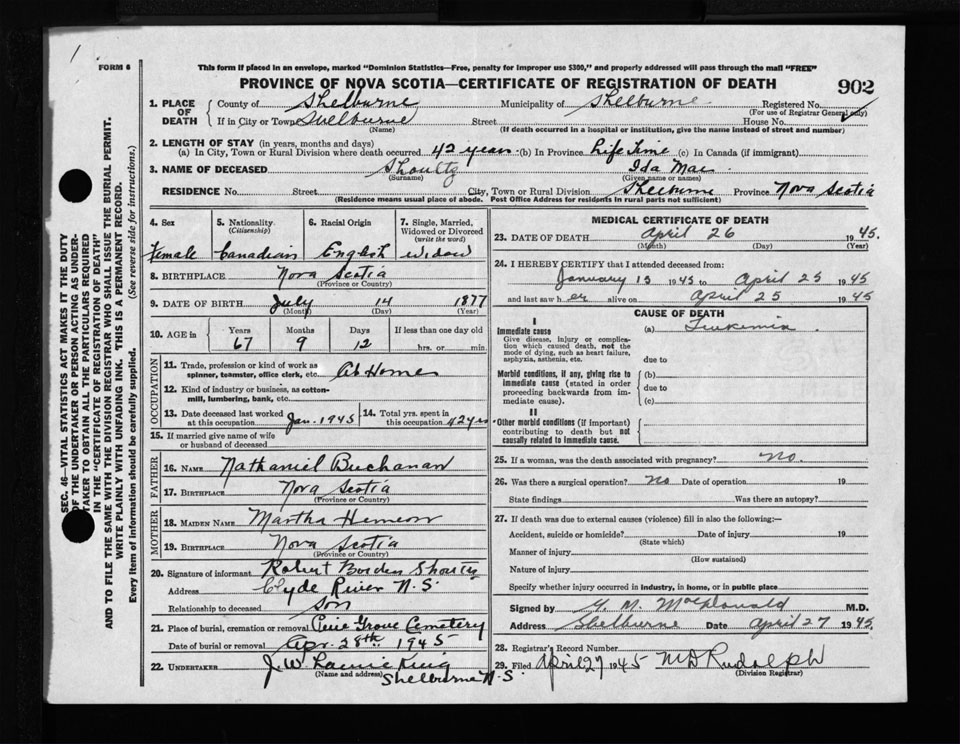 1
FORM 6
This form if placed in an envelope, marked "Dominion Statistics—Free, penalty for improper use $300," and properly addressed will pass through the mail "FREE"
PROVINCE OF NOVA SCOTIA—CERTIFICATE OF REGISTRATION OF DEATH 902
SEC. 46—VITAL STATISTICS ACT MAKES IT THE DUTY
OF THE UNDERTAKER OR PERSON ACTING AS UNDER-
TAKER TO OBTAIN ALL THE PARTICULARS REQUIRED
IN THE "CERTIFICATE OF REGISTRATION OF DEATH"
AND TO FILE THE SAME WITH THE DIVISION REGISTRAR WHO SHALL ISSUE THE BURIAL PERMIT.
WRITE PLAINLY WITH UNFADING INK. THIS IS A PERMANENT RECORD.
Every item of information should be carefully supplied. (See reverse side for instructions.)
1. PLACE OF DEATH County of Shelburne Municipality of Shelburne Registered No.
(For use of Registrar General only)
If in City or Town Shelburne Street House No.
(Name) (If death occurred in a hospital or institution, give the name instead of street and number)
2. LENGTH OF STAY (in years, months and days)
(a) In City, Town or Rural Division where death occurred 42 years (b) In Province Life Time (c) In Canada (if immigrant)
3. NAME OF DECEASED Shoultz Ida Mae
(Surname) (Given name or names)
RESIDENCE No. Street City, Town or Rural Division Shelburne Province Nova Scotia
(Residence means usual place of abode. Post Office Address for residents in rural parts not sufficient)
4. Sex 5. Nationality (Citizenship) 6. Racial Origin 7. Single, Married, Widowed or Divorced (write the word)
Female Canadian English Widow
8. BIRTHPLACE Nova Scotia
(Province or Country)
9. DATE OF BIRTH July 14 1877
(Month) (Day) (Year)
10. AGE in Years Months Days If less than one day old
67 9 12 hrs. or min.
OCCUPATION
11. Trade, profession or kind of work as spinner, teamster, office clerk, etc. At Home
12. Kind of industry or business, as cotton-mill, lumbering, bank, etc.
13. Date deceased last worked at this occupation Jan. 1945 14. Total yrs. spent in this occupation 42 yrs
15. If married give name of wife or husband of deceased
FATHER
16. NAME Nathaniel Buchanan
17. BIRTHPLACE Nova Scotia
(Province or Country)
MOTHER
18. MAIDEN NAME Martha Hemeon
19. BIRTHPLACE Nova Scotia
(Province or Country)
20. Signature of informant Robert Borden Shoultz
Address Clyde River N.S
Relationship to deceased Son
21. Place of burial, cremation or removal Pine Grove Cemetery
Date of burial or removal Apr. 28th 1945
22. UNDERTAKER J.W. King
(Name and address) Shelburne N.S.
MEDICAL CERTIFICATE OF DEATH
23. DATE OF DEATH April 26 1945.
(Month) (Day) (Year)
24. I HEREBY CERTIFY that I attended deceased from:
January 13 1945 to April 25 1945
and last saw her alive on April 25 1945
CAUSE OF DEATH
I
Immediate cause (a) Leukemia
Give disease, injury or complication which caused death, not the mode of dying, such as heart failure, asphyxia, asthenia, etc. due to
Morbid conditions, if any, giving rise to immediate cause (stated in order proceeding backwards from immediate cause). (b)
due to
(c)
II
Other morbid conditions (if important) contributing to death but not causally related to immediate cause.
25. If a woman, was the death associated with pregnancy? No.
26. Was there a surgical operation? No Date of operation 19
State findings Was there an autopsy?
27. If death was due to external causes (violence) fill in also the following:—
Accident, suicide or homicide? Date of injury 19
(State which)
Manner of injury
(How sustained)
Nature of injury
Specify whether injury occurred in industry, in home, or in public place
Signed by M. MacDonald M.D.
Address Shelburne Date April 27 1945.
28. Registrar's Record Number
29. Filed April 27 1945 MD Rudolph
(Division Registrar)